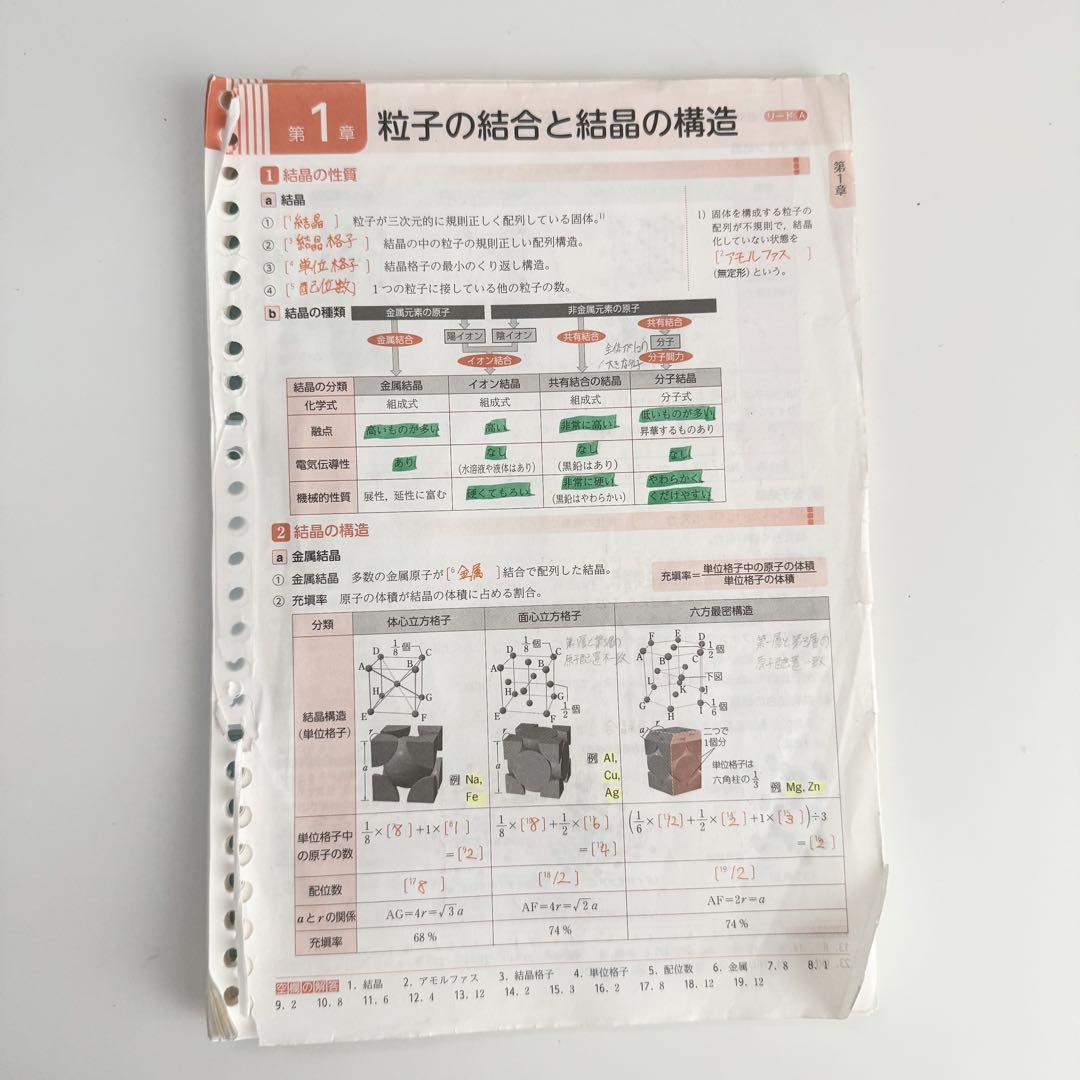 第1章 粒子の結合と結晶の構造 リードA
第1章
1 結晶の性質
a 結晶
① [¹結晶] 粒子が三次元的に規則正しく配列している固体。¹⁾
② [³結晶格子] 結晶の中の粒子の規則正しい配列構造。
③ [⁴単位格子] 結晶格子の最小のくり返し構造。
④ [⁵配位数] 1つの粒子に接している他の粒子の数。
1) 固体を構成する粒子の
配列が不規則で，結晶
化していない状態を
[²アモルファス]
(無定形)という。
b 結晶の種類
金属元素の原子 非金属元素の原子
金属結合 陽イオン 陰イオン 共有結合 共有結合
分子
イオン結合 分子間力
全体が1つの
大きな分子
結晶の分類 金属結晶 イオン結晶 共有結合の結晶 分子結晶
化学式 組成式 組成式 組成式 分子式
融点 高いものが多い 高い 非常に高い 低いものが多い
昇華するものあり
電気伝導性 あり なし なし なし
(水溶液や液体はあり) (黒鉛はあり)
機械的性質 展性，延性に富む 硬くてもろい 非常に硬い やわらかく
(黒鉛はやわらかい) くだけやすい
2 結晶の構造
a 金属結晶
① 金属結晶 多数の金属原子が[⁶金属]結合で配列した結晶。
② 充塡率 原子の体積が結晶の体積に占める割合。
充塡率=単位格子中の原子の体積/単位格子の体積
分類 体心立方格子 面心立方格子 六方最密構造
結晶構造
(単位格子)
1/8個
D C
A B
H G
E F
r
a
例 Na,
Fe
1/8個
第1層と第3層の
原子配置不一致
D C
A B
H G
E F
1/2個
r
a
例 Al,
Cu,
Ag
F E D
1/2個
A B C
下図
L K J
G H I
1/6個
第1層と第3層の
原子配置一致
a r
二つで
1個分
単位格子は
六角柱の1/3
例 Mg, Zn
単位格子中
の原子の数
1/8×[⁷8]+1×[⁸1]
=[⁹2]
1/8×[¹⁰8]+1/2×[¹¹6]
=[¹²4]
(1/6×[¹³12]+1/2×[¹⁴2]+1×[¹⁵3])÷3
=[¹⁶2]
配位数 [¹⁷8] [¹⁸12] [¹⁹12]
aとrの関係 AG=4r=√3a AF=4r=√2a AF=2r=a
充塡率 68% 74% 74%
空欄の解答 1. 結晶 2. アモルファス 3. 結晶格子 4. 単位格子 5. 配位数 6. 金属 7. 8 8. 1
9. 2 10. 8 11. 6 12. 4 13. 12 14. 2 15. 3 16. 2 17. 8 18. 12 19. 12